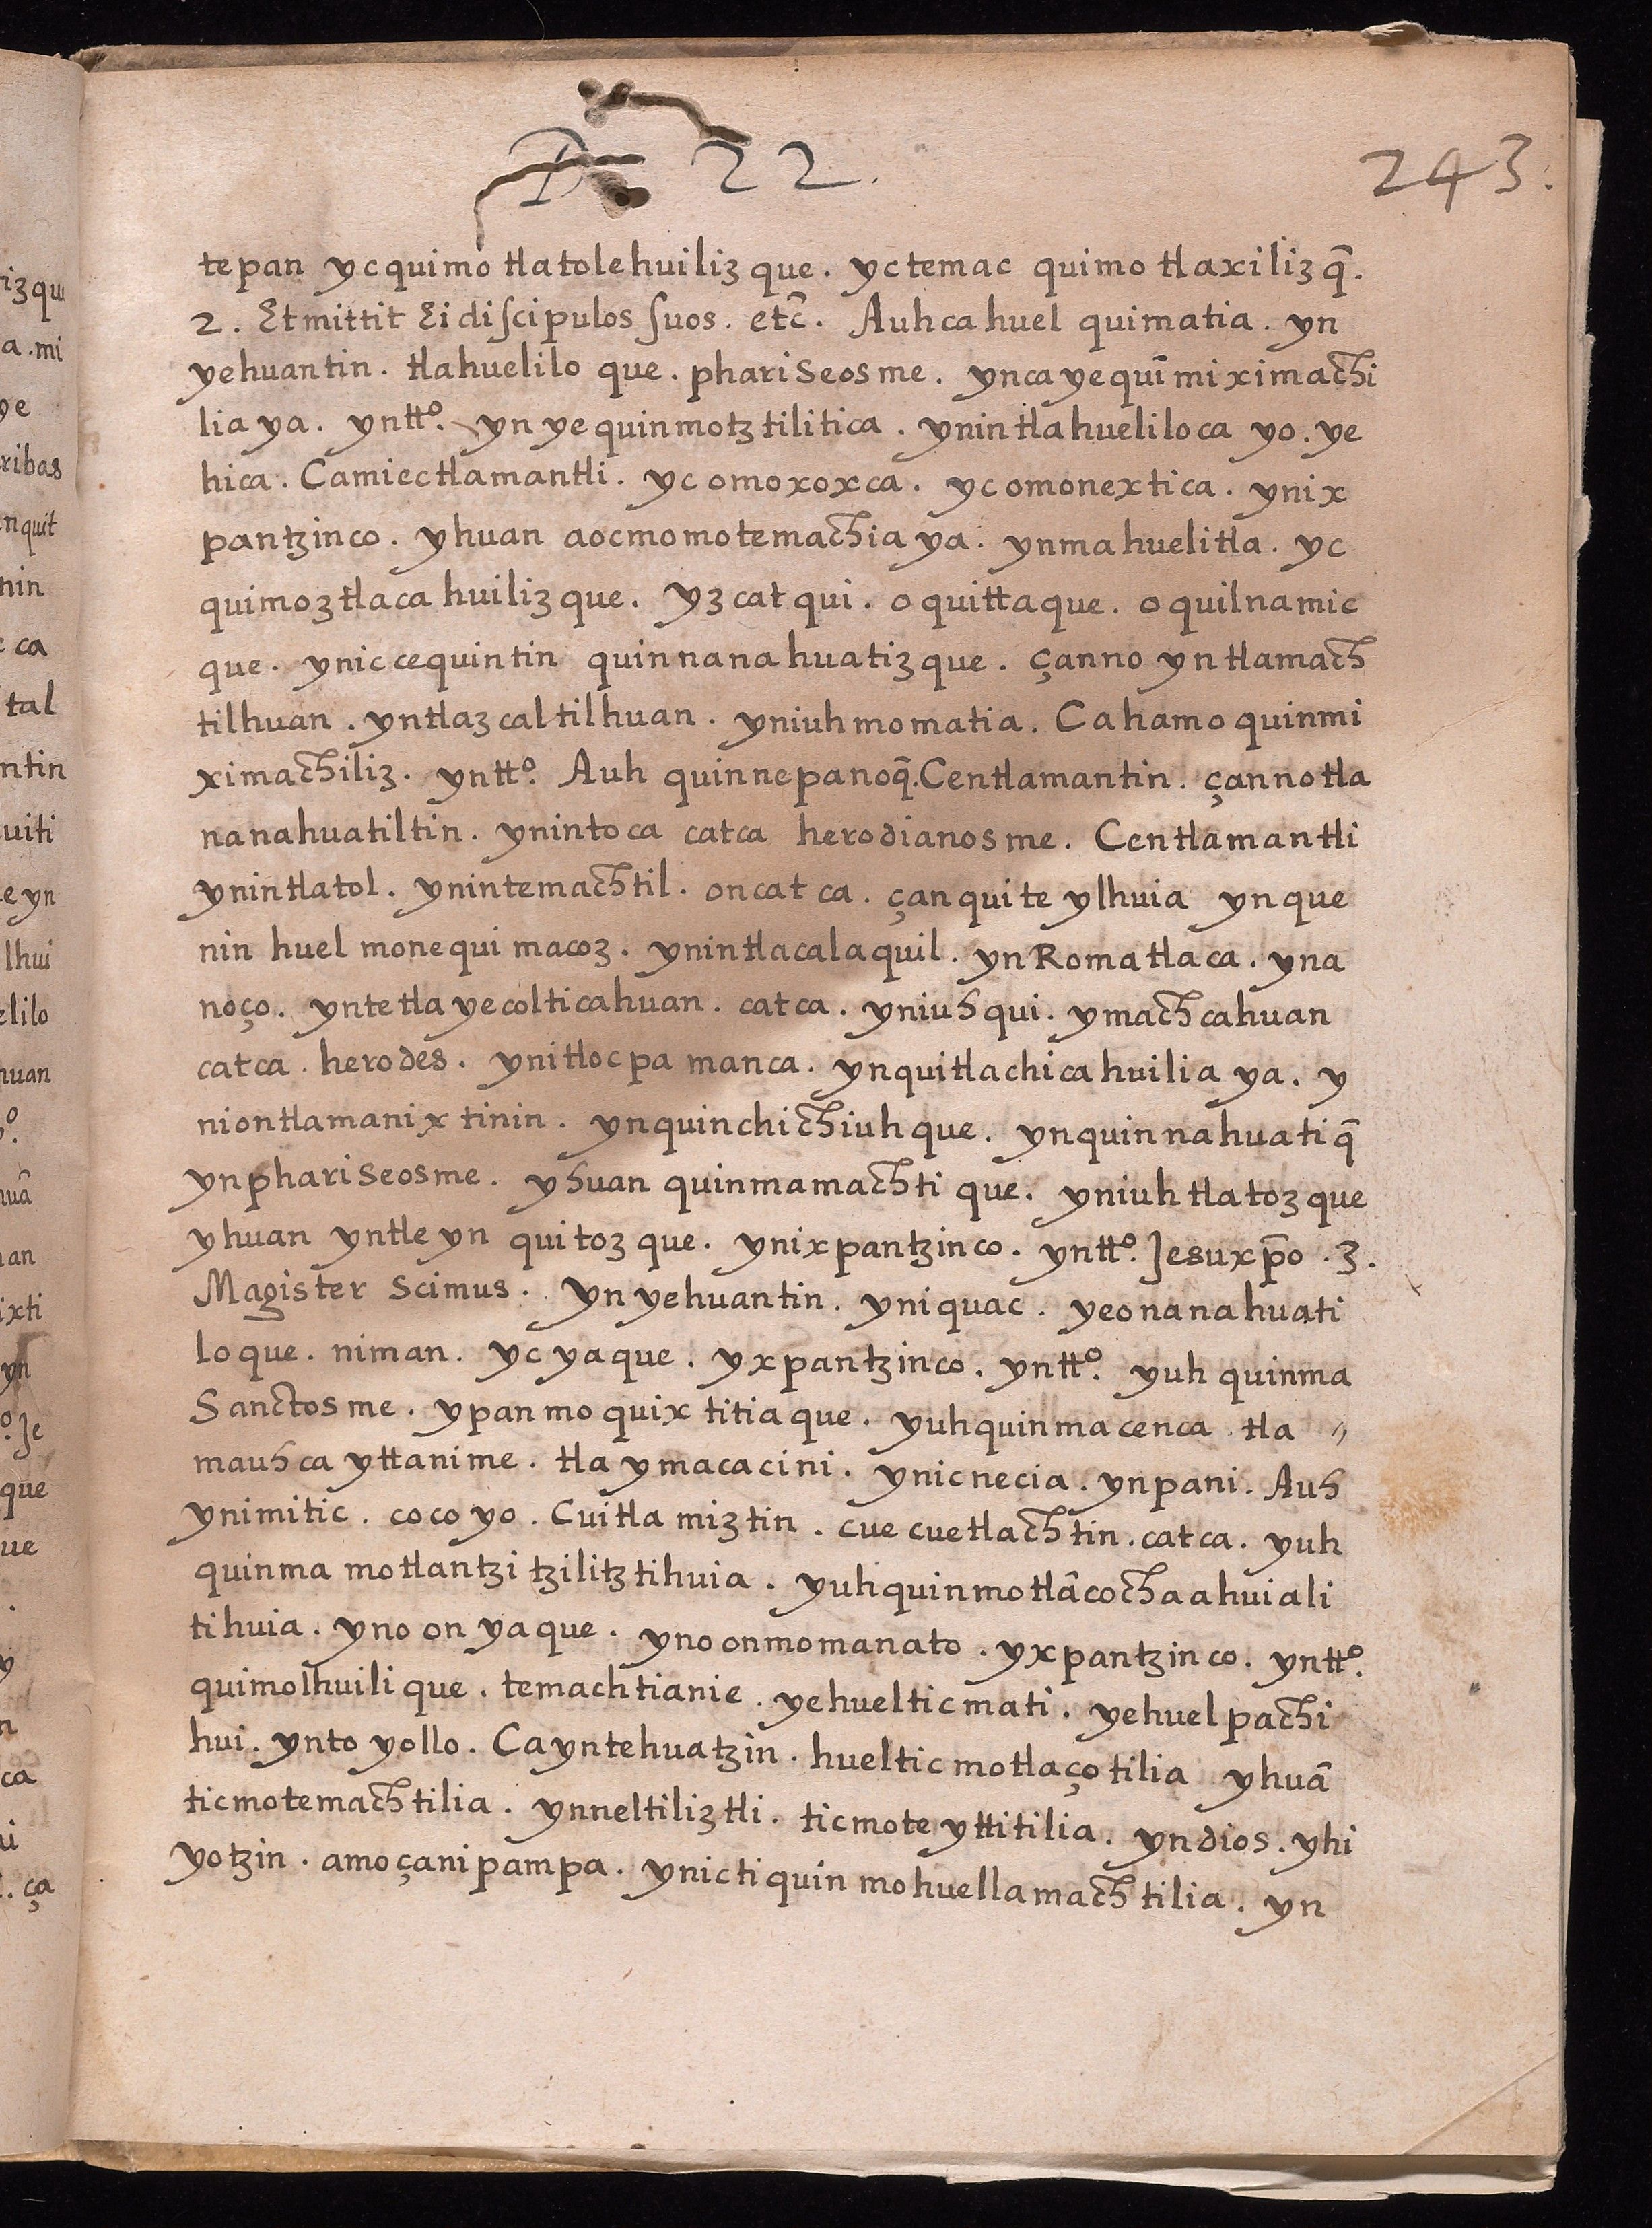 D 22. 243.
tepan ycquimo tlatolehuiliz que. yctemac quimo tlaxiliz q̄.
2. Et mittit Ei diſcipulos ſuos. etc̄. Auh ca huel quimatia. yn
yehuantin. tlahuelilo que. phariseosme. ynca yequī miximachi
lia ya. yntt.º yn ye quinmotz tilitica. ynin tlahueliloca yo. ye
hica. Camiectlamantli. yc omoxoxca. yc omonextica. ynix
pantzinco. yhuan aocmomotemachia ya. ynma huelitla. yc
quimoztlaca huiliz que. yz cat qui. o quittaque. o quilnamic
que. ynic cequintin quinnanahuatiz que. çanno yn tlamach
tilhuan. yntlazcaltilhuan. yniuh momatia. Ca hamo quinmi
ximachiliz. yntt.º Auh quinnepanoq̄. Centlamantin. çanno tla
nanahuatiltin. ynintoca catca herodianosme. Centlamantli
ynintlatol. ynintemachtil. oncat ca. çan quite ylhuia yn que
nin huel monequi macoz. ynintlacalaquil. yn Roma tlaca. yna
noço. yntetlayecolticahuan. catca. yniuhqui. ymachcahuan
catca. herodes. ynitlocpa manca. ynquitlachicahuilia ya. y
niontlamanixtinin. ynquinchichiuhque. ynquinnahuatiq̄
ynphariseosme. yhuan quinmamachti que. yniuh tlatoz que
yhuan yntleyn quitoz que. ynixpantzinco. yntt.º Jesuxp̄o. 3.
Magister scimus. yn yehuantin. yniquac. yeonanahuati
loque. niman. yc yaque. yxpantzinco. yntt.º yuh quinma
Sanctosme. ypan moquixtitiaque. yuhquinma cenca tla〃
mauhca yttanime. tla ymacacini. ynic necia. ynpani. Auh
ynimitic. cocoyo. Cuitla miztin. cue cuetlachtin. catca. yuh
quinma motlantzitzilitztihuia. yuhquinmotlācochaahuiali
tihuia. yno on yaque. yno onmomanato. yxpantzinco. yntt.º
quimolhuilique. temachtianie. yehuelticmati. yehuelpachi
hui. ynto yollo. Ca yntehuatzin. hueltic motlaçotilia yhuā
ticmotemachtilia. ynneltiliztli. ticmote yttitilia. yn dios. yhi
yotzin. amo çanipampa. ynictiquin mohuellamachtilia. yn